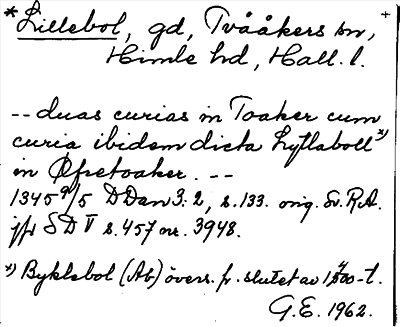 *Lillebol, gd, Tvååkers sn, +
Himle hd, Hall. l.
-- duas curias in Toaker cum
curia ibidem dicta Lytlaboll x)
in Øfretoaker. --
1345 9/5 DDan 3:2, s.133. orig. Sv. R.A.
jfr SD V s.457 nr. 3948.
x) Byklebol (Ab) övers. fr. slutet av 1400-t.
G.E. 1962.